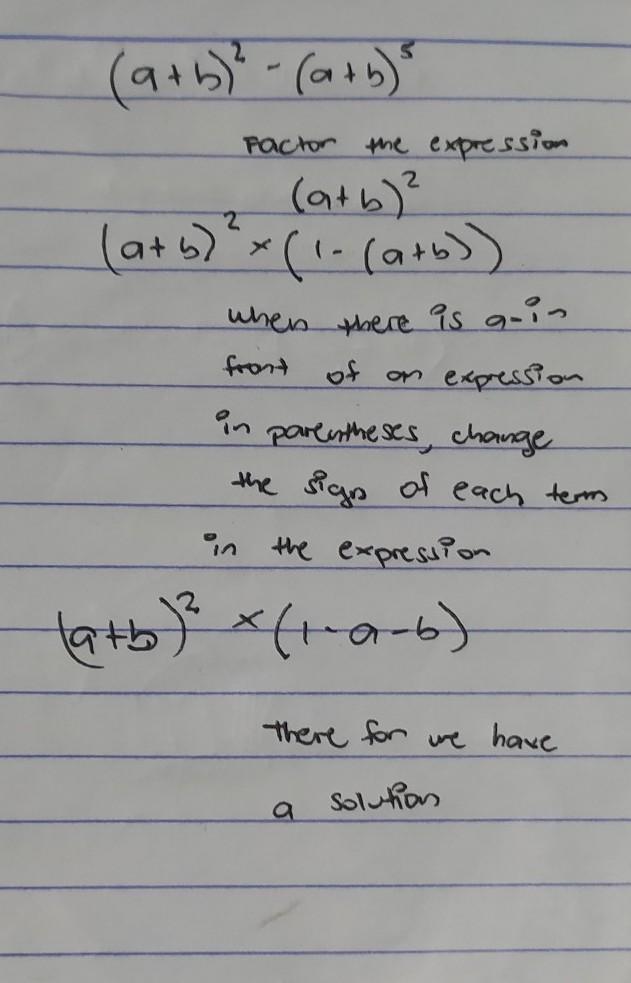 (a+b)² - (a+b)⁵
Factor the expression
(a+b)²
(a+b)² × (1-(a+b))
when there is a - in
front of an expression
in parentheses, change
the sign of each term
in the expression
(a+b)² × (1-a-b)
there for we have
a solution